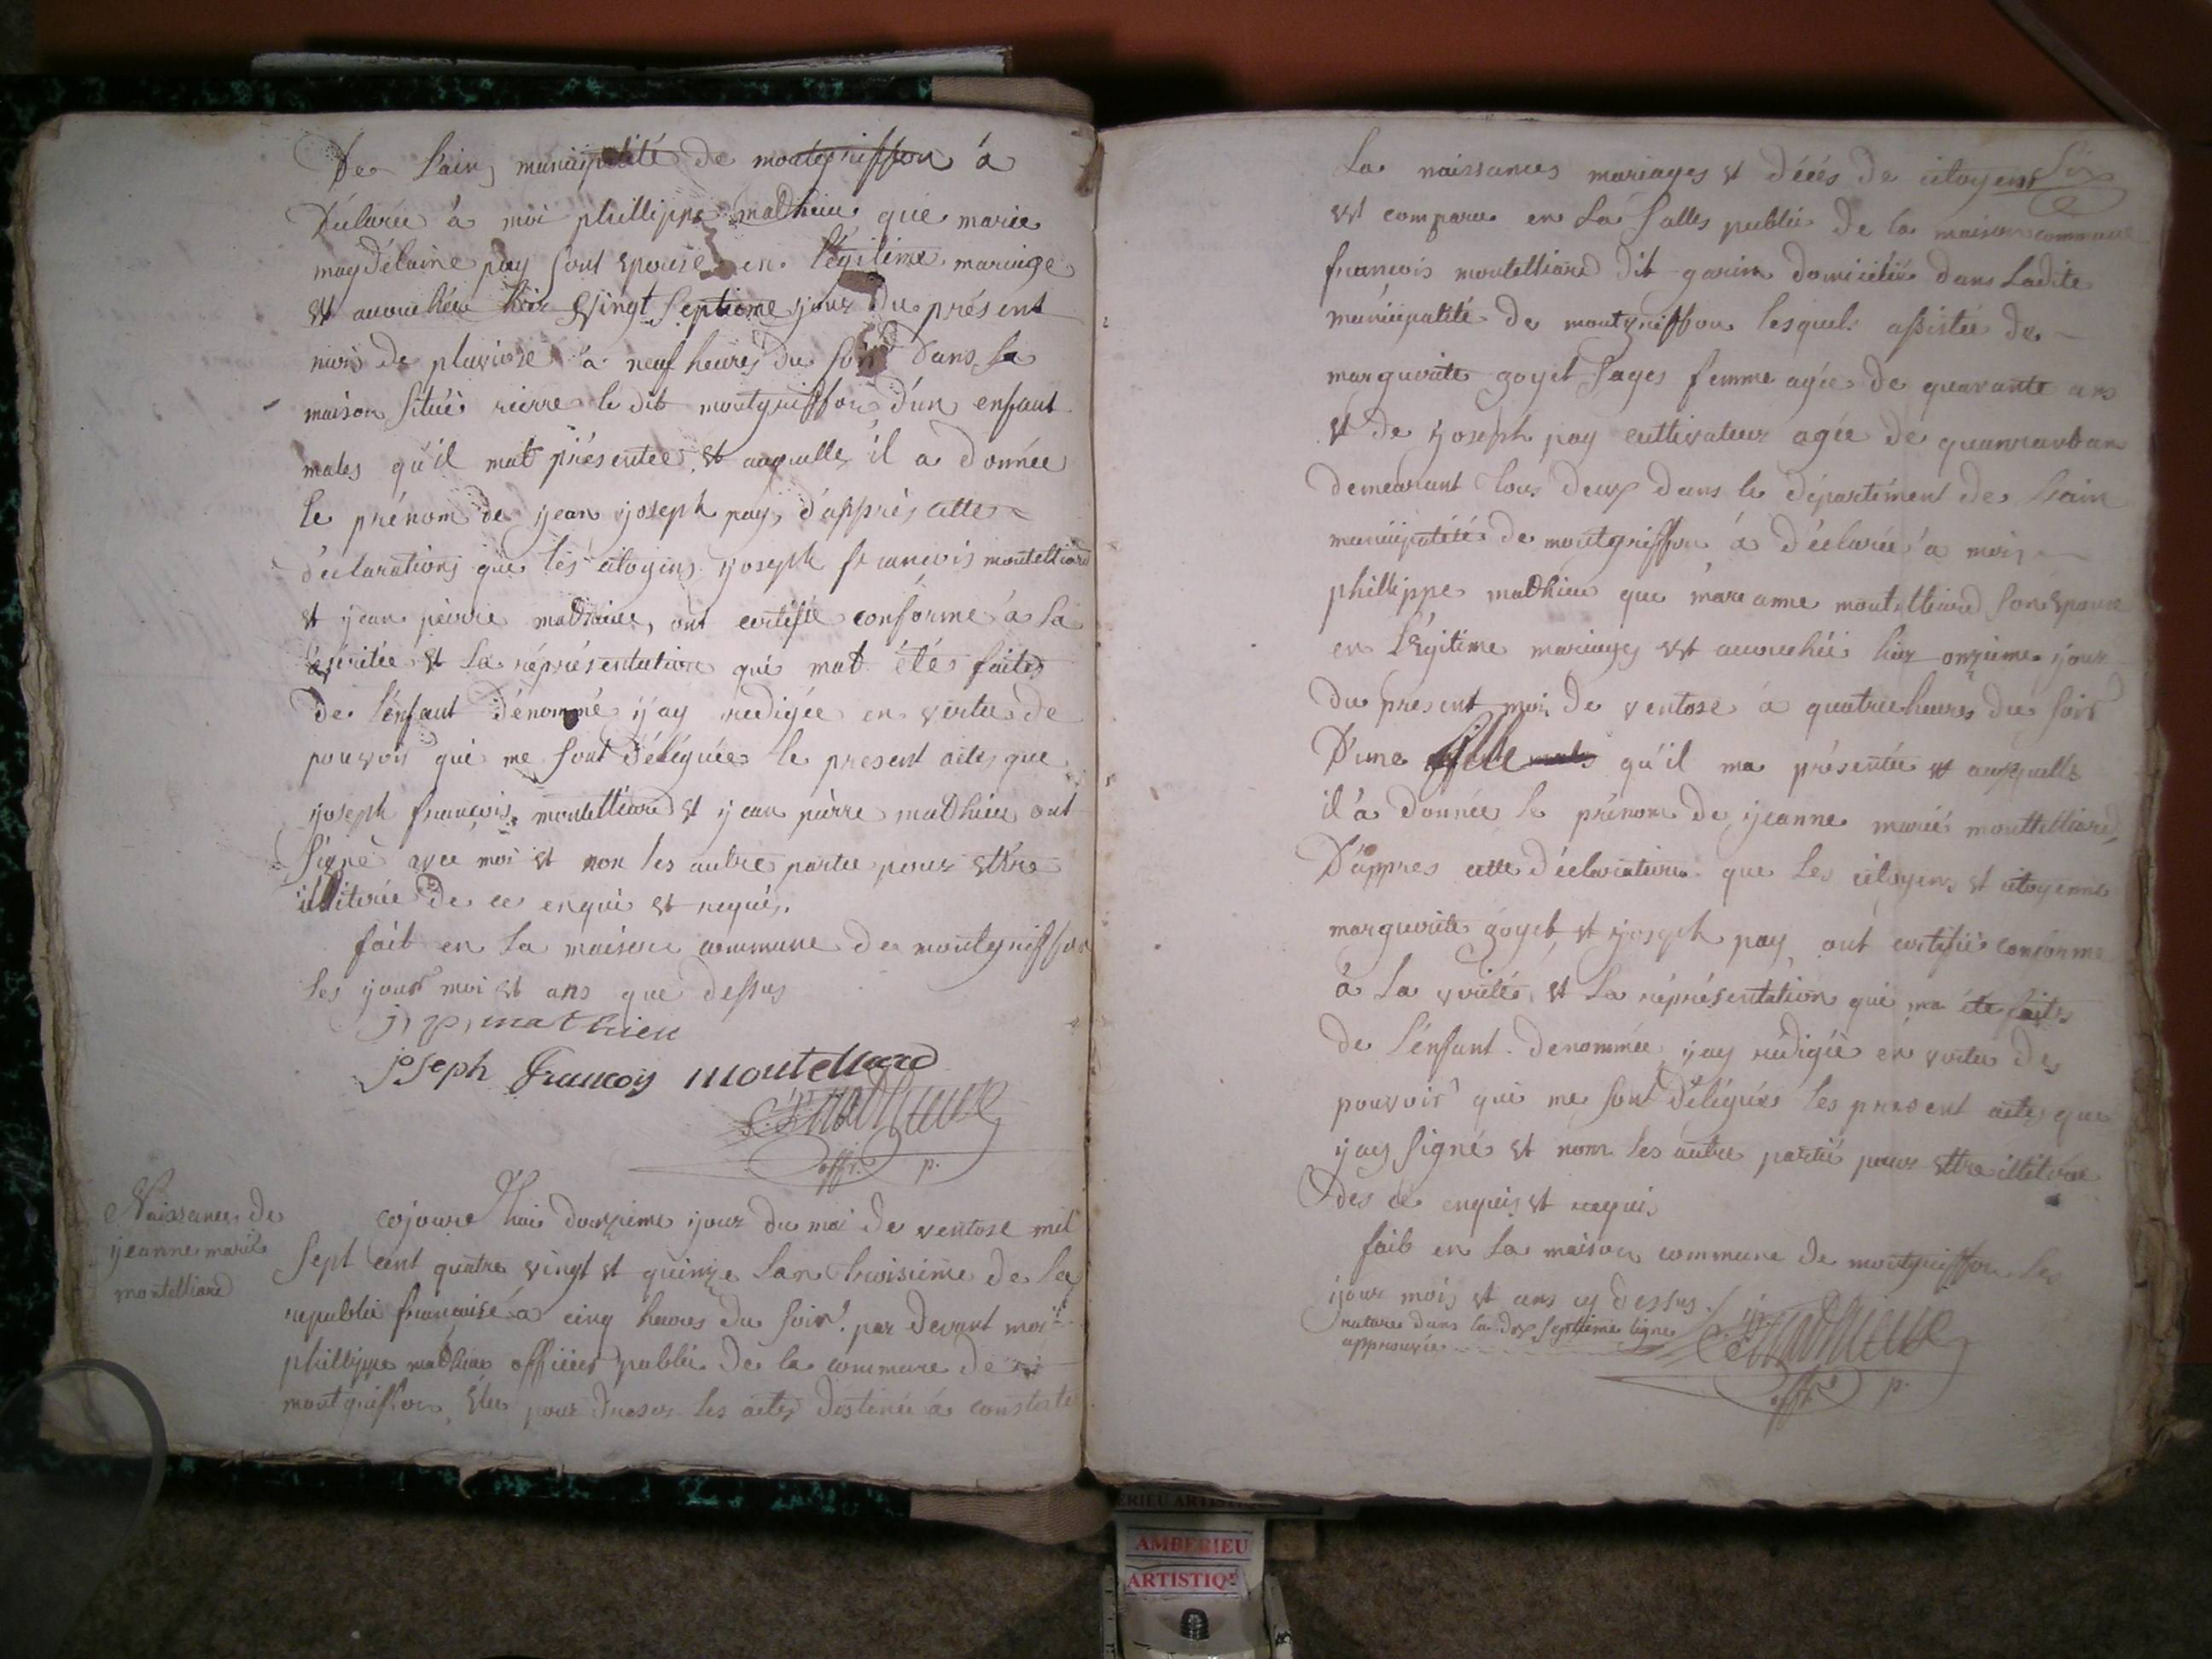 De Lain municipalité de montgriffon á
Déclarée á moi phillippe mathieu que marie
magdélaine pay sont epouse en légitime mariage
et accouchée hier vingt septieme jour du présent
mois de pluviose á neuf heures du soir dans la
maison située rierre le dit montgriffon d'un enfant
males qu'il mat présentée et auquelle il a donnée
le prénom de jean joseph pay, d'apprés cette
déclarations que les citoyens joseph francois montelliard
et jean pierre mathieu, ont certifié conforme á la
véritée et la représentation qui mat étés faites
de l'enfant dénommé j'ay redigée en vertu de
pouvoir qui me sont déléguées le present actes que
joseph françois montelliard et jean pierre mathieu ont
signé avec moi et non les autre partie pour ettre
illiterée de ce enqui et requis.
fait en la maison commune de montgriffon
les jour moi et ans que dessus
j, p, mathieu
joseph francois montelliard
mathieu
offr. p.
Naissances de
jeanne marie
montelliard
cojourd'hui douzieme jour du moi de ventose mil
sept cent quatre vingt et quinze lan troisieme de la
republie françoise á cinq heures du soir par devant moi
phillippe mathieu officier publie de la commune de
montgriffon, élu pour dreser les actes destinée á constate
La naissances mariages et décés de citoyens Six
est comparu en la salles publie de la maison commune
francois montelliard dit garin domicilié dans ladite
municipalité de montgriffon lesquel assistée de
marguerite goyet sages femme agée de quarante ans
et de joseph pay cultivateur agée de quarante ans
demeurant tous deux dans le département de Lain
municipalité de montgriffon á déclarée á moi
phillippe mathieu que marianne montelliard son epouse
en légitime mariages est accouchée hier onzieme jour
du present moi de ventose á quatre heures du soir
D'une fille males qu'il ma présentée et auxquelle
il á donnée le prénom de jeanne marie montelliard,
D'appres cette déclaration que les citoyens et citoyenne
marguerite goyet et joseph pay ont certifié conforme
á la verité, et la représentation qui ma été faites
de l'enfant denommée j'ay redigée en vertu des
pouvoir qui me sont délégués les present actes que
j'ay signé et nom les autre partie pour ettre illiterée
des ce enquis et requis
fait en la maison commune de montgriffon les
jour mois et ans cy dessus.
rature dans la dix septieme ligne
approuvée
mathieu
offr. p.
AMBERIEU
ARTISTIQ